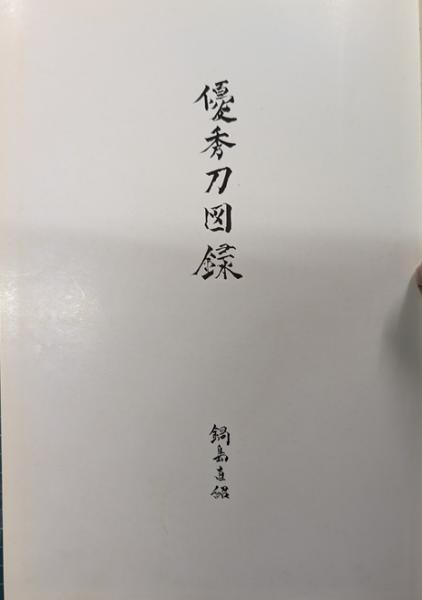 優秀刀図録
鍋島直紹